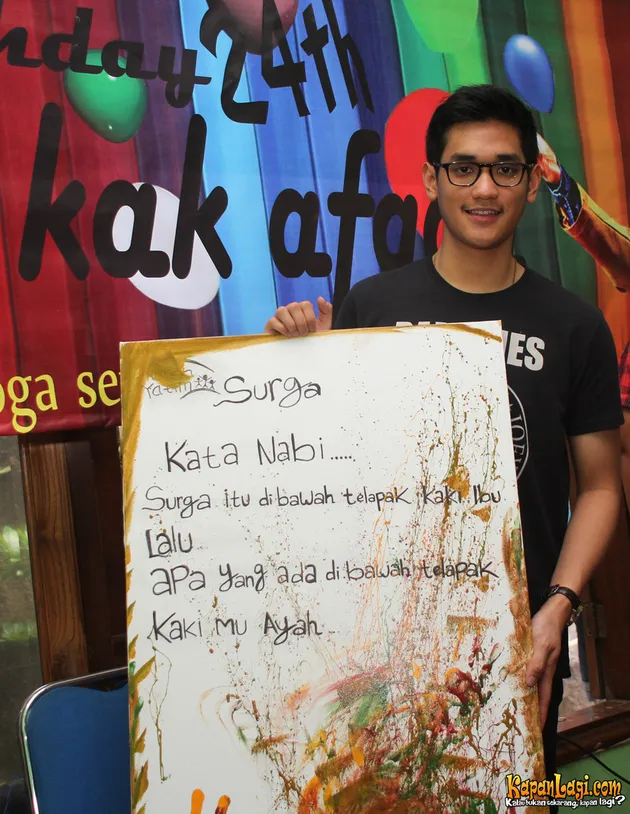 hday 24th
kak afga
oga se
Yatim
Surga
Kata Nabi.....
Surga itu dibawah telapak kaki Ibu
Lalu
apa yang ada dibawah telapak
kaki mu Ayah
KapanLagi.com
Kalau bukan sekarang, kapan lagi?